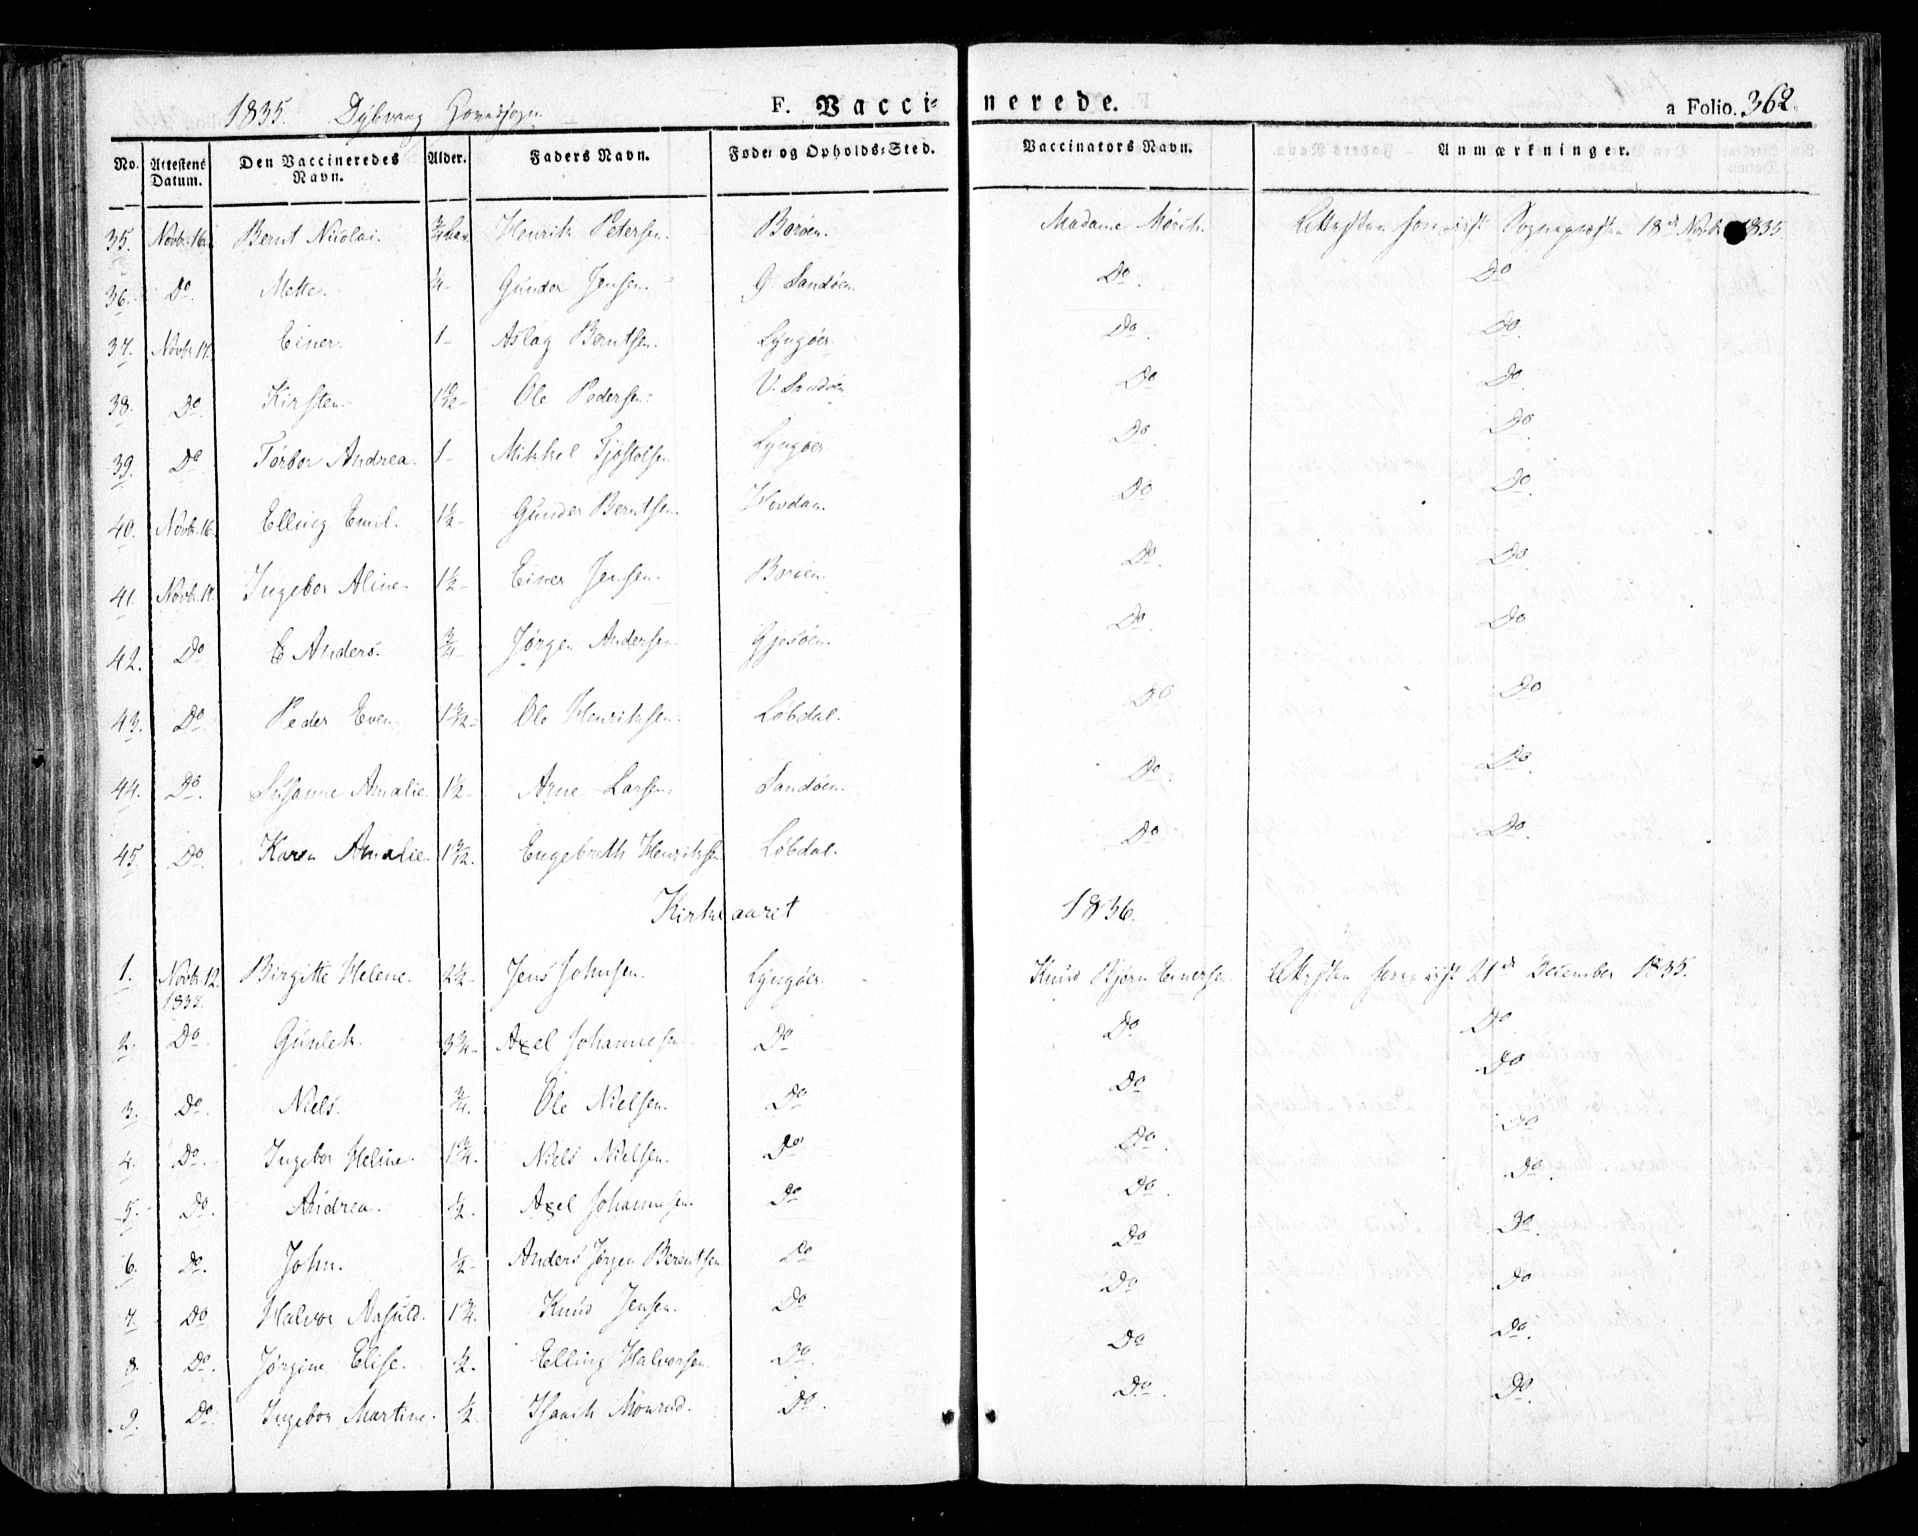 1835. Dybvaag F. Vaccinerede. a Folio. 362.
No. Attestens Datum. Den Vaccineredes Navn. Alder. Faders Navn. Føde- og Opholds-Sted. Vaccinators Navn. Anmærkninger.
35. Novbr 16. Bernt Nicolai. 3/4 Henrik Petersen. Borøen. Madame Mørch. 18de Novbr 1835.
36. Do. Mette. 1/4 Gunder Jensen. G. Sandøen. Do. Do.
37. Novbr 17. Einer. 1 Aslag Berntsen. Lyngøer. Do. Do.
38. Do. Kirsten. Ole Pedersen. V. Sandøen Do Do.
39. Do Torbor Andrea. 1 Mikkel Lyngøer Do. Do.
40. Novbr 16. Elling Emil. 1 1/2 Gunder Berntsen. Hovdan. Do. Do.
41. Novbr 17. Ingebor Aline. 1 1/2 Einer Jensen. Borøen. Do. Do
42. Do Anders. 3/4 Jørgen Andersen. Gjesøen. Do. Do.
43. Do Peder Even. Ole Henriksen. Løbdal. Do Do
44. Do. Susanne Amalie. 1 1/2 Arne Larsen. Sandøen. Do. Do.
45. Do. Karen Amalie. Engebreth Henriksen Løbdal. Do Do.
Kirkeaaret 1836.
1. Novbr. 12. Birgitte Helene. 2 1/2 Jens Johnsen. Lyngøer. Knud Bjørn Einersen. 21de December 1835.
2. Do. Gunlek. 3 3/4 Axel Johannesen Do Do Do.
3. Do. Niels. 3/4. Ole Nielsen. Do Do Do.
4. Do. Ingebor Heline. 1 3/4. Niels Nielsen. Do Do. Do
5. Do. Andrea. 1/2. Axel Johannesen. Do Do. Do.
6. Do. John. 1/2 Anders Jørgen Berentsen Do Do Do.
7. Do Halvor Nafuld. 1 3/4. Knud Jensen. Do Do Do
8. Do. Jørgine Elise. 1/2. Elling Halvorsen. Do. Do Do.
9. Do. Ingebor Martine. 1/2 Isaach Monrad. Do. Do. Do.